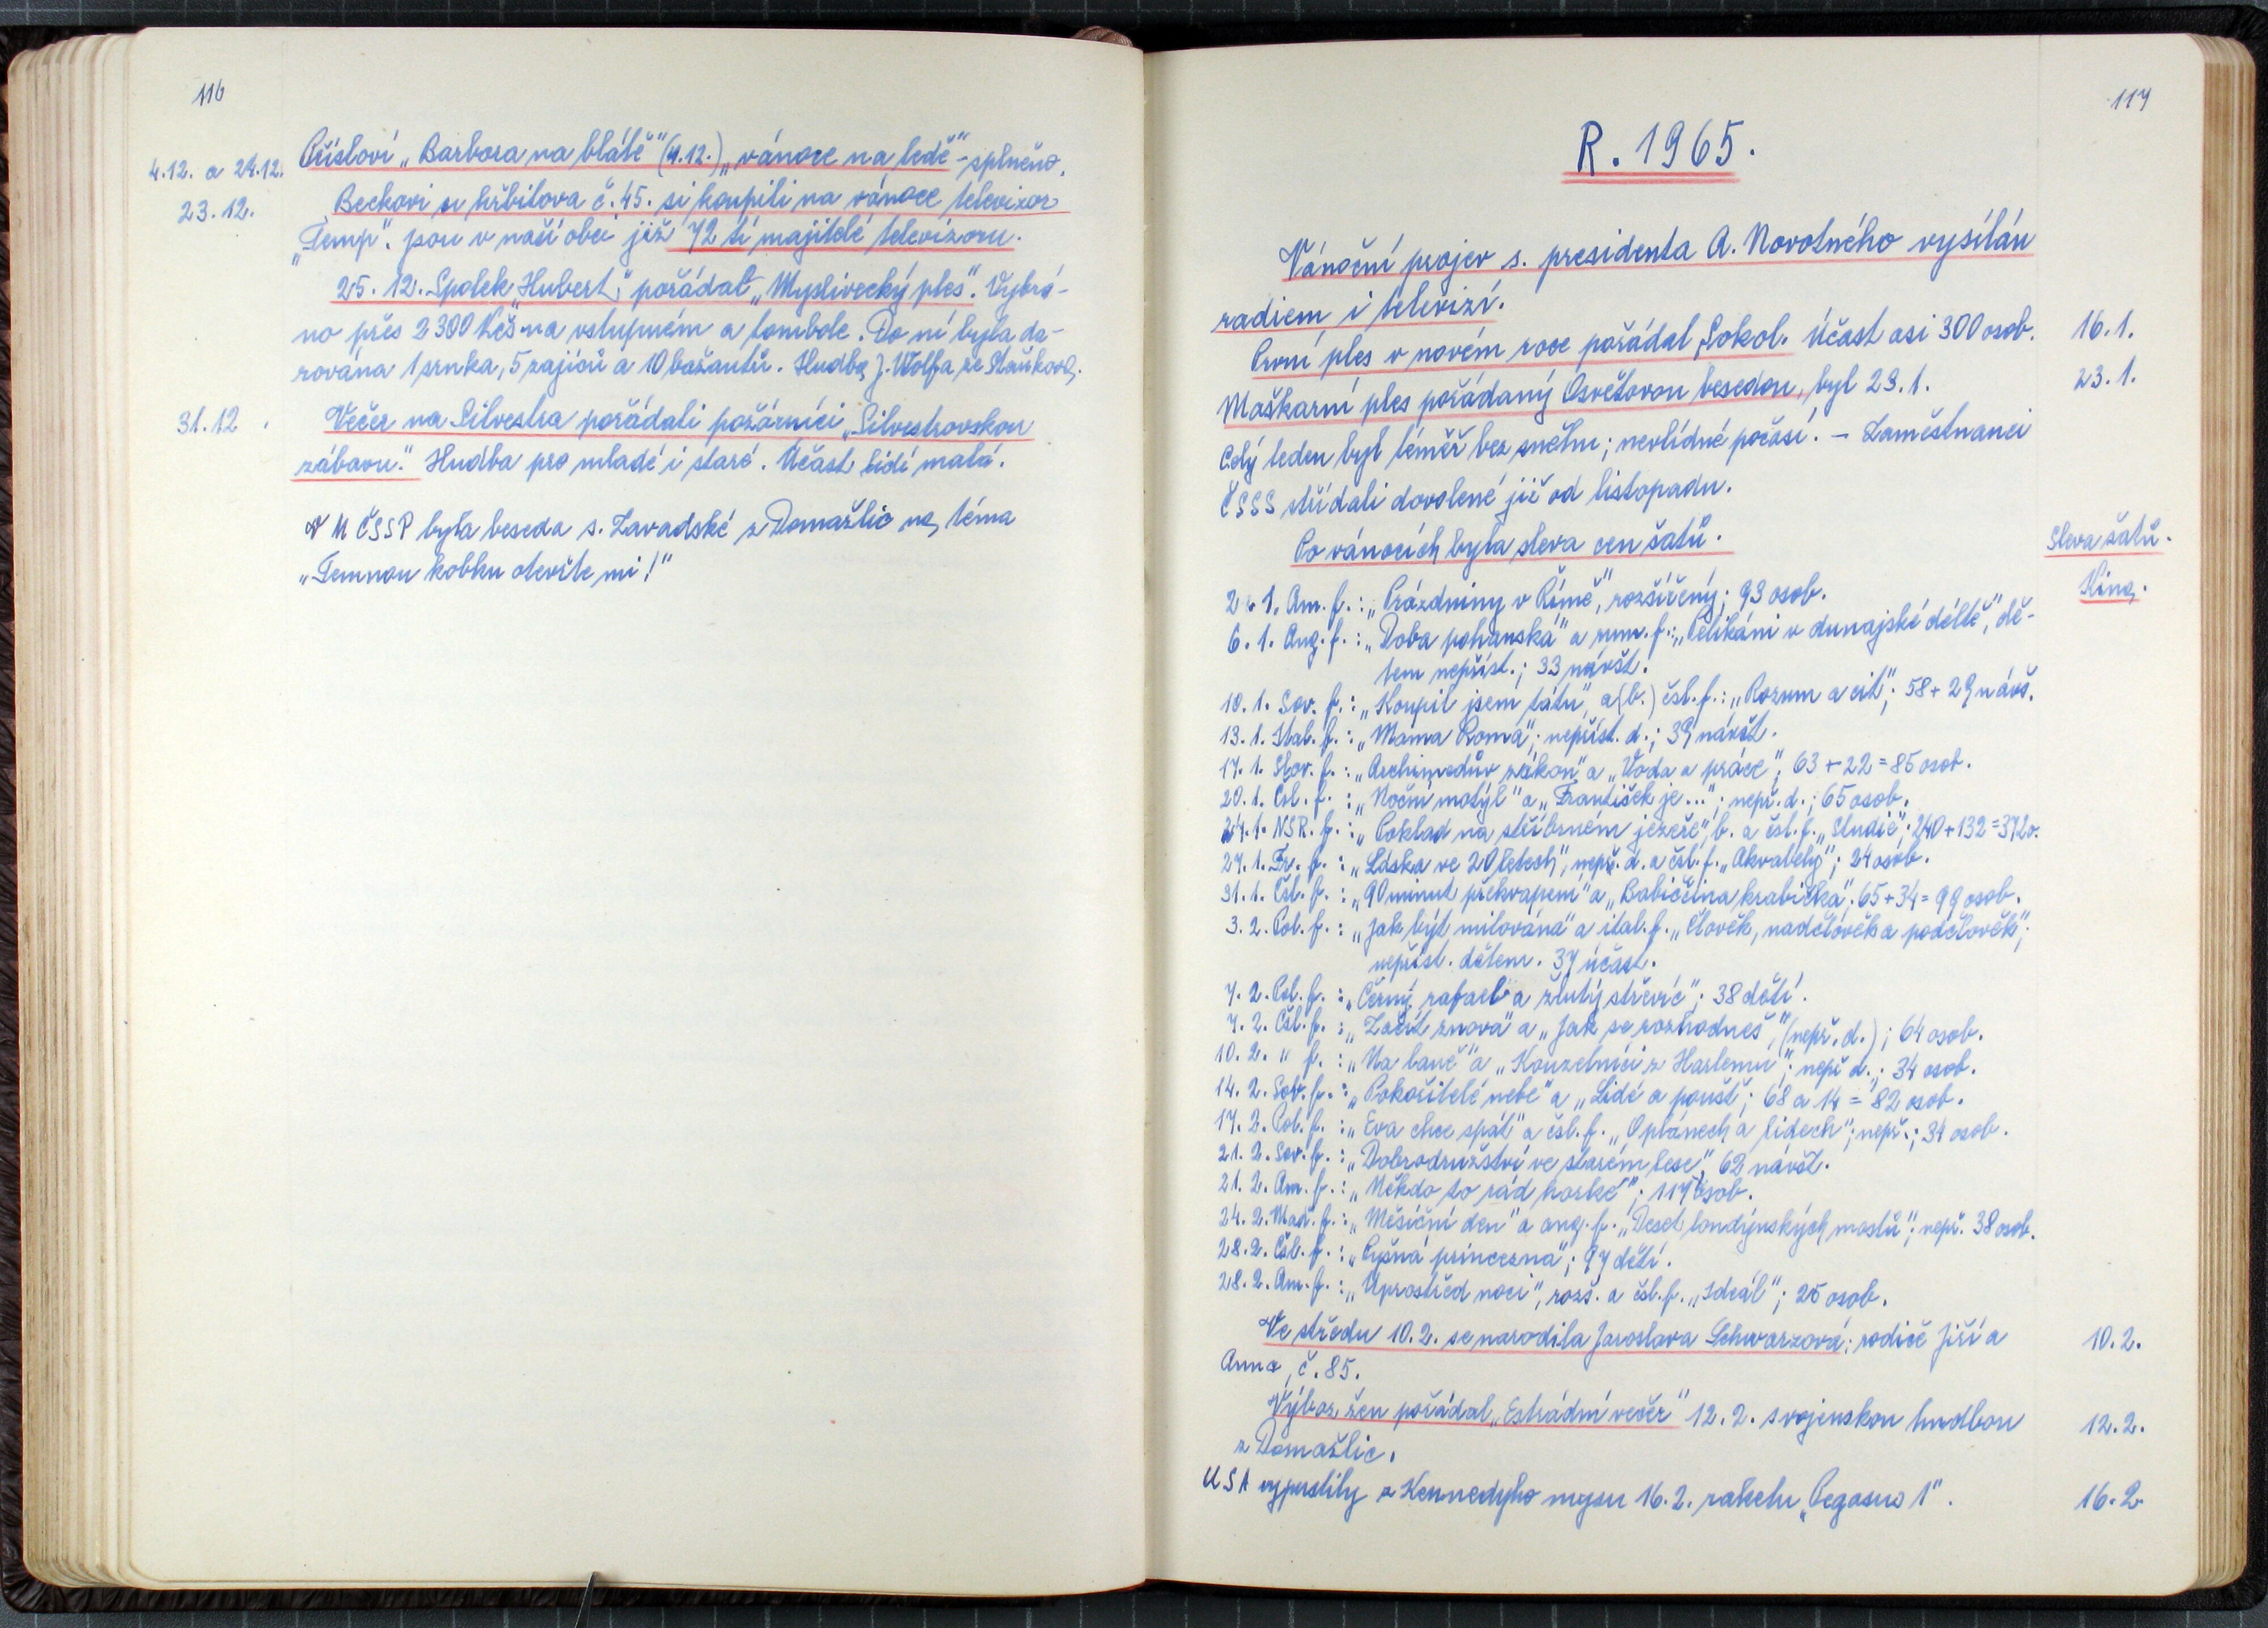 116
4.12. a 24.12.
Přísloví „Barbora na blátě" (4.12.) „vánoce na ledě" - splněno.
23.12.
Beckovi u hřbitova č. 45. si koupili na vánoce televizor
„Temp". Jsou v naší obci již 72 tí majitelé televizoru.
25. 12. Spolek „Hubert" pořádal „Myslivecký ples". Vybrá-
no přes 2300 Kčs na vstupném a tombole. Do ní byla da-
rována 1 srnka, 5 zajíců a 10 bažantů. Hudba J. Wolfa ze Staňkova.
31.12.
Večer na Silvestra pořádali požárníci „Silvestrovskou
zábavu." Hudba pro mladé i staré. Účast lidí malá.
V M ČSSP byla beseda s. Zavadské z Domažlic na téma
„Temnou kobku otevřte mi!"
117
R. 1965.
Vánoční projev s. presidenta A. Novotného vysílán
radiem i televizí.
První ples v novém roce pořádal Sokol. Účast asi 300 osob.
16.1.
Maškarní ples pořádaný Osvětovou besedou, byl 23.1.
23.1.
Celý leden byl téměř bez sněhu; nevlídné počasí. - Zaměstnanci
ČSSS střídali dovolené již od listopadu.
Po vánocích byla sleva cen šatů.
Sleva šatů.
Kina.
2. 1. Am. f.: „Prázdniny v Římě", rozšířený; 93 osob.
6. 1. Ang. f.: „Doba pohanská" a rum. f.: „Pelikáni v dunajské deltě", dě-
tem nepříst.; 33 návšt.
10. 1. Sov. f.: „Koupil jsem tátu", a (b.) čsl. f.: „Rozum a cit"; 58 + 29 návš.
13. 1. Ital. f.: „Mama Roma"; nepříst. d.; 39 návšt.
17. 1. Slov. f.: „Archimedův zákon" a „Voda a práce"; 63 + 22 = 85 osob.
20. 1. Čsl. f.: „Noční motýl" a „František je..."; nepř. d.; 65 osob.
24. 1. NSR. f.: „Poklad na stříbrném jezeře", b. a čsl. f. „Studie"; 240 + 132 = 372 o.
27. 1. Fr. f.: „Láska ve 20 letech", nepř. d. a čsl. f. „Akvabely"; 24 osob.
31. 1. Čsl. f.: „90 minut překvapení" a „Babiččina krabička"; 65 + 34 = 99 osob.
3. 2. Pol. f.: „Jak být milována" a ital. f. „Člověk, nadčlověk a podčlověk";
nepříst. dětem. 37 účast.
7. 2. Pol. f.: „Černý rafael a žlutý střevíc"; 38 dětí.
7. 2. Čsl. f.: „Začít znova" a „Jak se rozhodneš", (nepř. d.); 64 osob.
10. 2. " f.: „Na laně" a „Kouzelníci z Harlemu"; nepř d.; 34 osob.
14. 2. Sov. f.: „Pokořitelé nebe" a „Lidé a poušť; 68 a 14 = 82 osob.
17. 2. Pol. f.: „Eva chce spát" a čsl. f. „O plánech a lidech"; nepř.; 34 osob.
21. 2. Sov. f.: „Dobrodružství ve starém lese"; 62 návšt.
21. 2. Am. f.: „Někdo to rád horké"; 117 osob.
24. 2. Maď. f.: „Měsíční den" a ang. f. „Deset londýnských mostů"; nepř. 38 osob.
28. 2. Čsl. f.: „Pyšná princezna"; 97 dětí.
28. 2. Am. f.: „Uprostřed noci", rozš. a čsl. f. „Ideál"; 25 osob.
Ve středu 10. 2. se narodila Jaroslava Schwarzová; rodiče Jiří a
10. 2.
Anna, č. 85.
Výbor žen pořádal „Estrádní večer" 12. 2. s vojenskou hudbou
12. 2.
z Domažlic.
USA vypustily z Kennedyho mysu 16. 2. raketu „Pegasus 1".
16. 2.